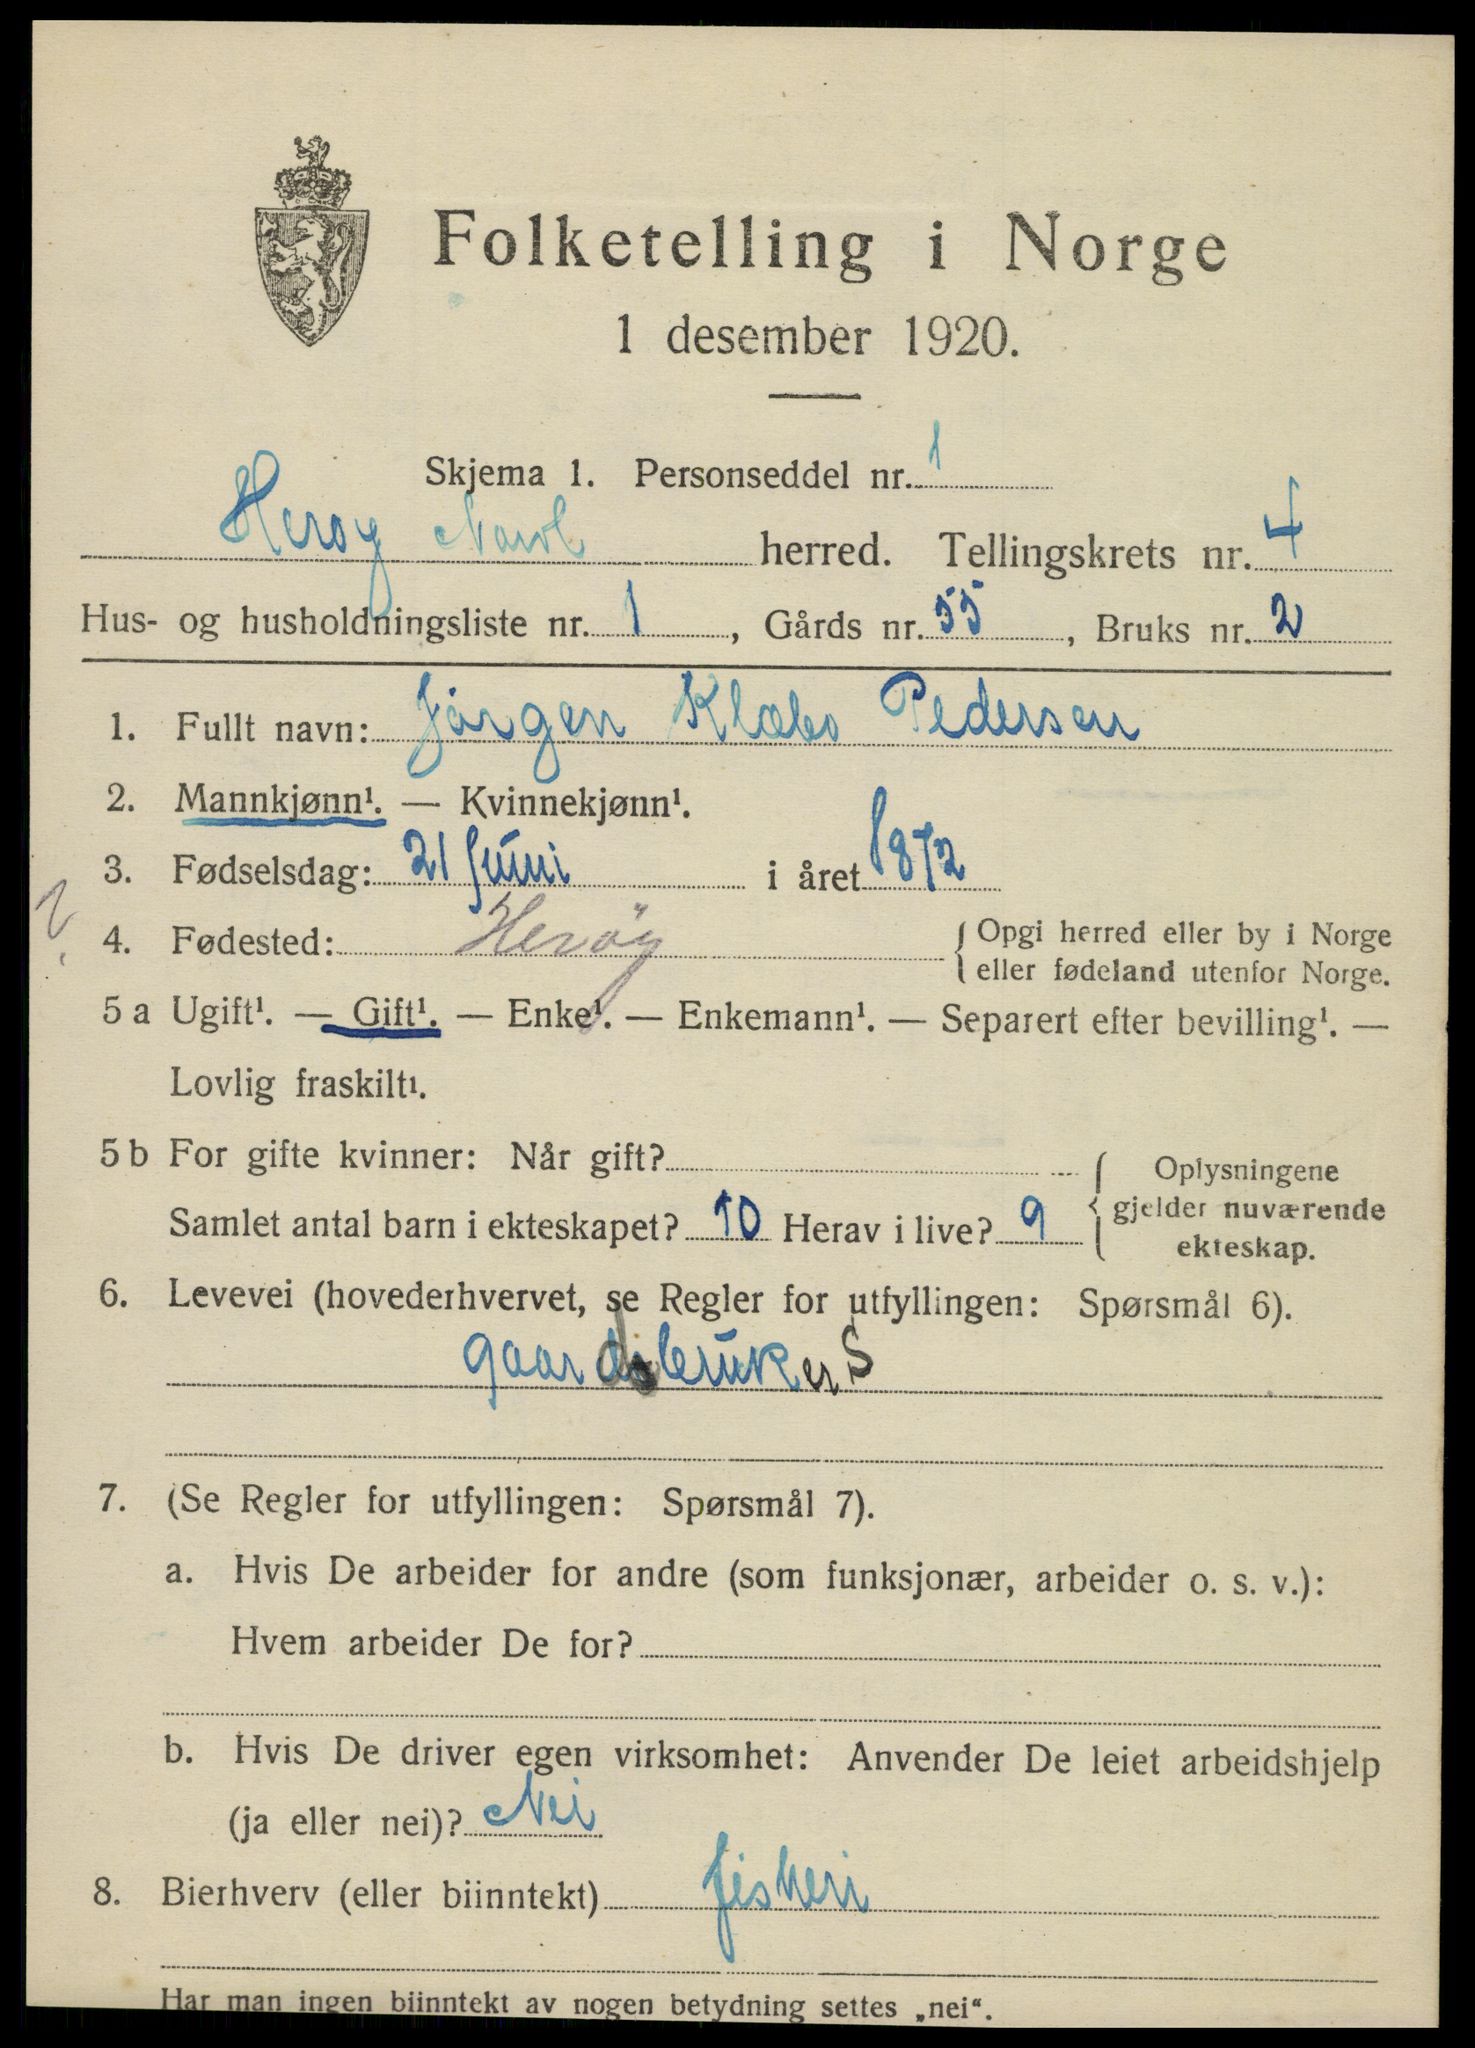 Folketelling i Norge
1 desember 1920.
Skjema 1. Personseddel nr. 1
Herøy Nordl herred. Tellingskrets nr. 4
Hus- og husholdningsliste nr. 1, Gårds nr. 55, Bruks nr. 2
1. Fullt navn: Jørgen Klæbo Pedersen
2. Mannkjønn¹. — Kvinnekjønn¹.
3. Fødselsdag: 21 Juni i året 1872
?
4. Fødested: Herøy { Opgi herred eller by i Norge
eller fødeland utenfor Norge.
5 a Ugift¹. — Gift¹. — Enke¹. — Enkemann¹. — Separert efter bevilling¹. —
Lovlig fraskilt¹.
5 b For gifte kvinner: Når gift? { Oplysningene
gjelder nuværende
ekteskap.
Samlet antal barn i ekteskapet? 10 Herav i live? 9
6. Levevei (hovederhvervet, se Regler for utfyllingen: Spørsmål 6).
gaardsbruker S
7. (Se Regler for utfyllingen: Spørsmål 7).
a. Hvis De arbeider for andre (som funksjonær, arbeider o. s. v.):
Hvem arbeider De for?
b. Hvis De driver egen virksomhet: Anvender De leiet arbeidshjelp
(ja eller nei)? Nei
8. Bierhverv (eller biinntekt) fiskeri
Har man ingen biinntekt av nogen betydning settes „nei“.